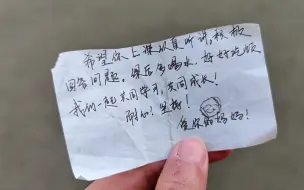 希望你上课认真听讲，积极
回答问题，课后多喝水，好好吃饭
我们一起共同学习，共同成长！
加油！坚持！
爱你的妈妈！